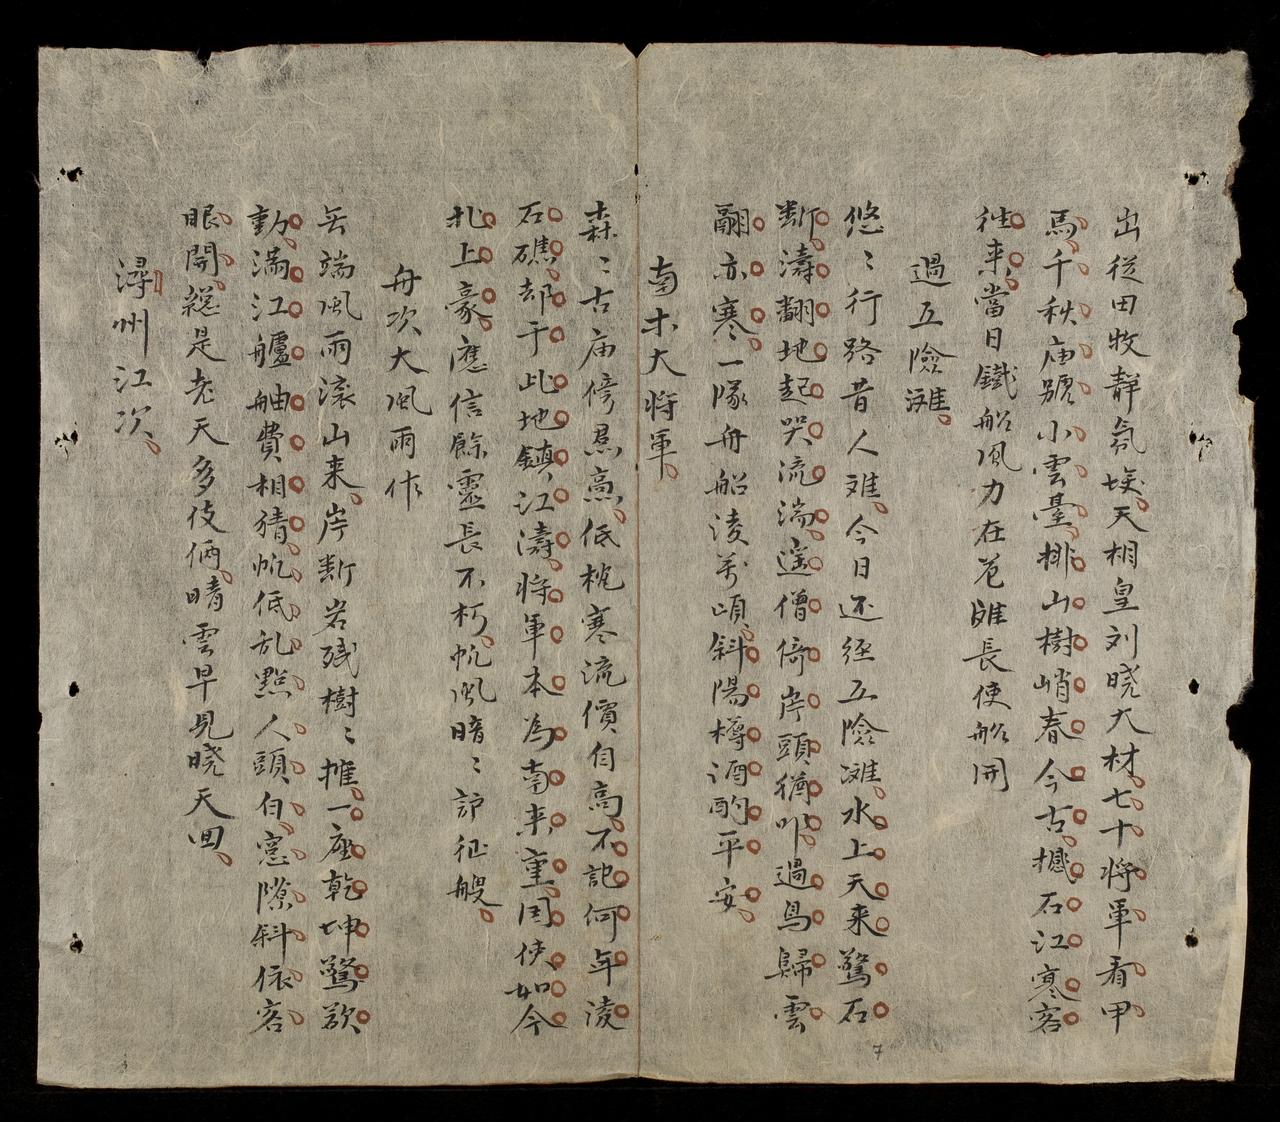 出從田牧靜氛埃天相皇刘晓大材七十將軍看甲
馬千秋庙號小雲臺排山樹峭春今古撼石江寒客
往来當日鐵船風力在莫雖長使船開
過五險灘
悠〻行路昔人难今日还經五險灘水上天来驚石
断濤翻地起哭流湍遥僧倚岸頭獨吖過鳥歸雲
翮亦寒一隊舟船淩萬頃斜陽樽酒酌平安
南木大將軍
森〻古庙傍熏高低枕寒流價自高不記何年淩
石礁却于此地鎮江濤將軍本為南来重国使如今
北上豪應信餘靈長不朽帆風暗〻護征艘
舟次大風雨作
無端風雨滚山来岸断岩残樹〻摧一座乾坤驚欲
動滿江艫舳費相猜帆低乱點人頭白窓隙斜依客
眼開總是老天多伎俩晴雲早見晓天回
潯州江次
7